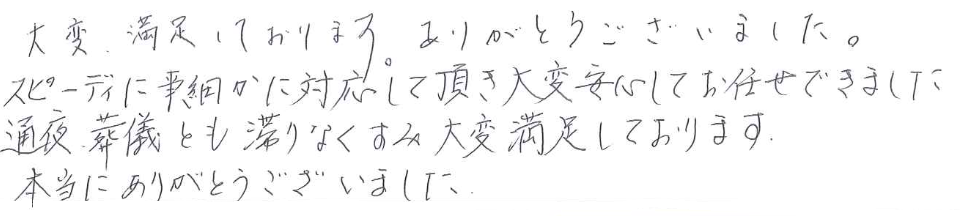 大変、満足しております。ありがとうございました。
スピーディに事細かに対応して頂き大変安心してお任せできました
通夜、葬儀とも滞りなくすみ大変満足しております.
本当にありがとうございました.